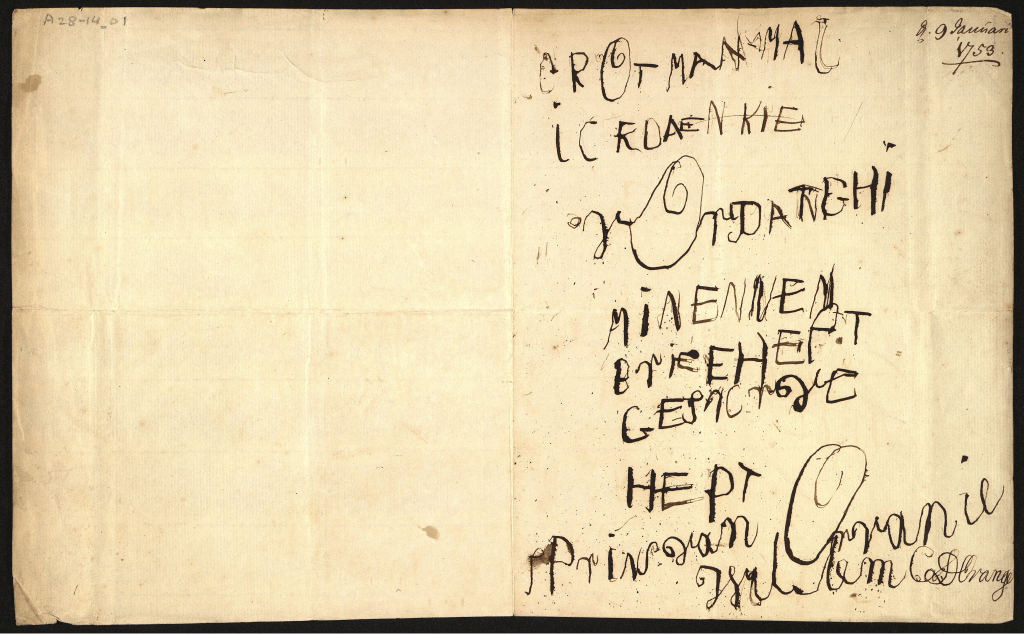 A28-14_01
d. 9 Januari
1753.
GROTMAMMAC
iC EDAENKIE
VOrDATGHI
MiNENNEN
BrIEEHEFT
GESHCrEVE
HEPT
Prins van Oranie
Willem C D'Orange